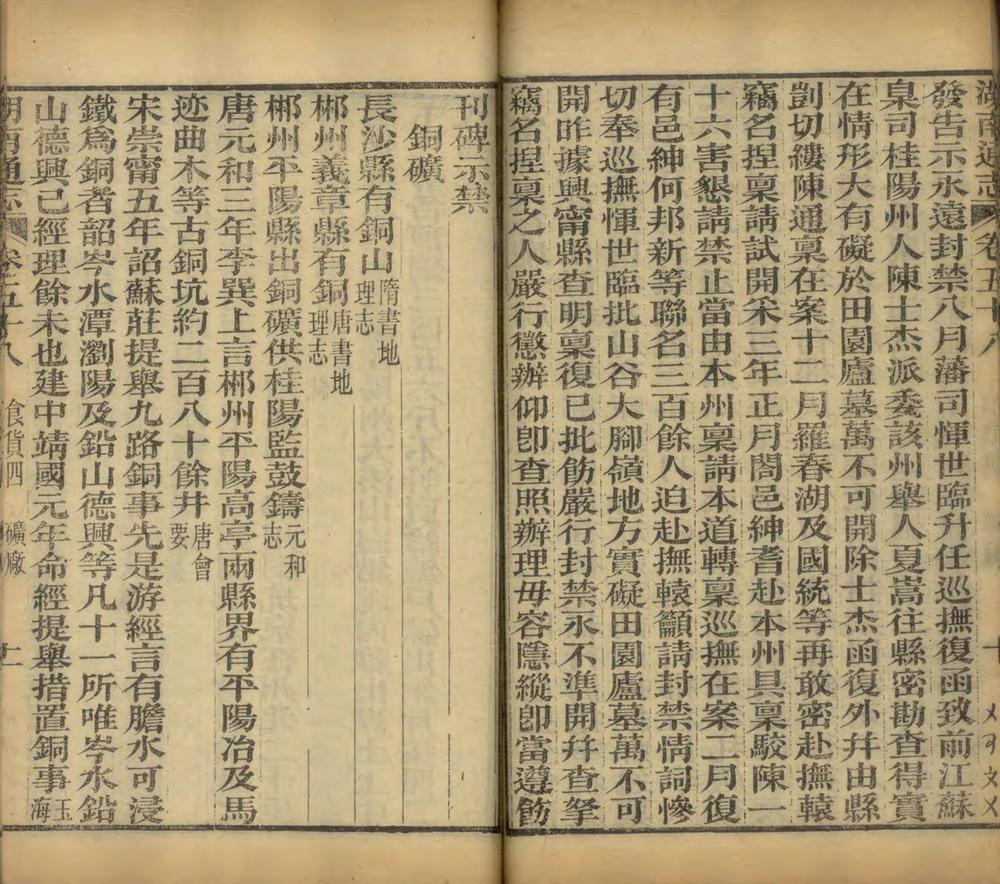 湖南通志 卷五十八
發告示永遠封禁八月藩司惲世臨升任巡撫復函致前江蘇
臬司桂陽州人陳士杰派委該州舉人夏嵩往縣密勘查得實
在情形大有礙於田園廬墓萬不可開除士杰函復外幷由縣
剴切縷陳通稟在案十二月羅春湖及國統等再敢密赴撫轅
竊名揑稟請試開采三年正月閤邑紳耆赴本州具稟駮陳一
十六害懇請禁止當由本州稟請本道轉稟巡撫在案二月復
有邑紳何邦新等聯名三百餘人迫赴撫轅籲請封禁情詞慘
切奉巡撫惲世臨批山谷大腳嶺地方實礙田園廬墓萬不可
開昨據興甯縣查明稟復已批飭嚴行封禁永不準開幷查拏
竊名揑稟之人嚴行懲辦仰卽查照辦理毋容隱縱卽當遵飭
刊碑示禁
銅礦
長沙縣有銅山隋書地理志
郴州義章縣有銅唐書地理志
郴州平陽縣出銅礦供桂陽監鼓鑄元和志
唐元和三年李巽上言郴州平陽高亭兩縣界有平陽冶及馬
迹曲木等古銅坑約二百八十餘井唐會要
宋崇甯五年詔蘇莊提舉九路銅事先是游經言有膽水可浸
鐵爲銅者韶岑水潭瀏陽及鉛山德興等凡十一所唯岑水鉛
山德興已經理餘未也建中靖國元年命經提舉措置銅事玉海
湖南通志 卷五十八 食貨四 礦廠 十一